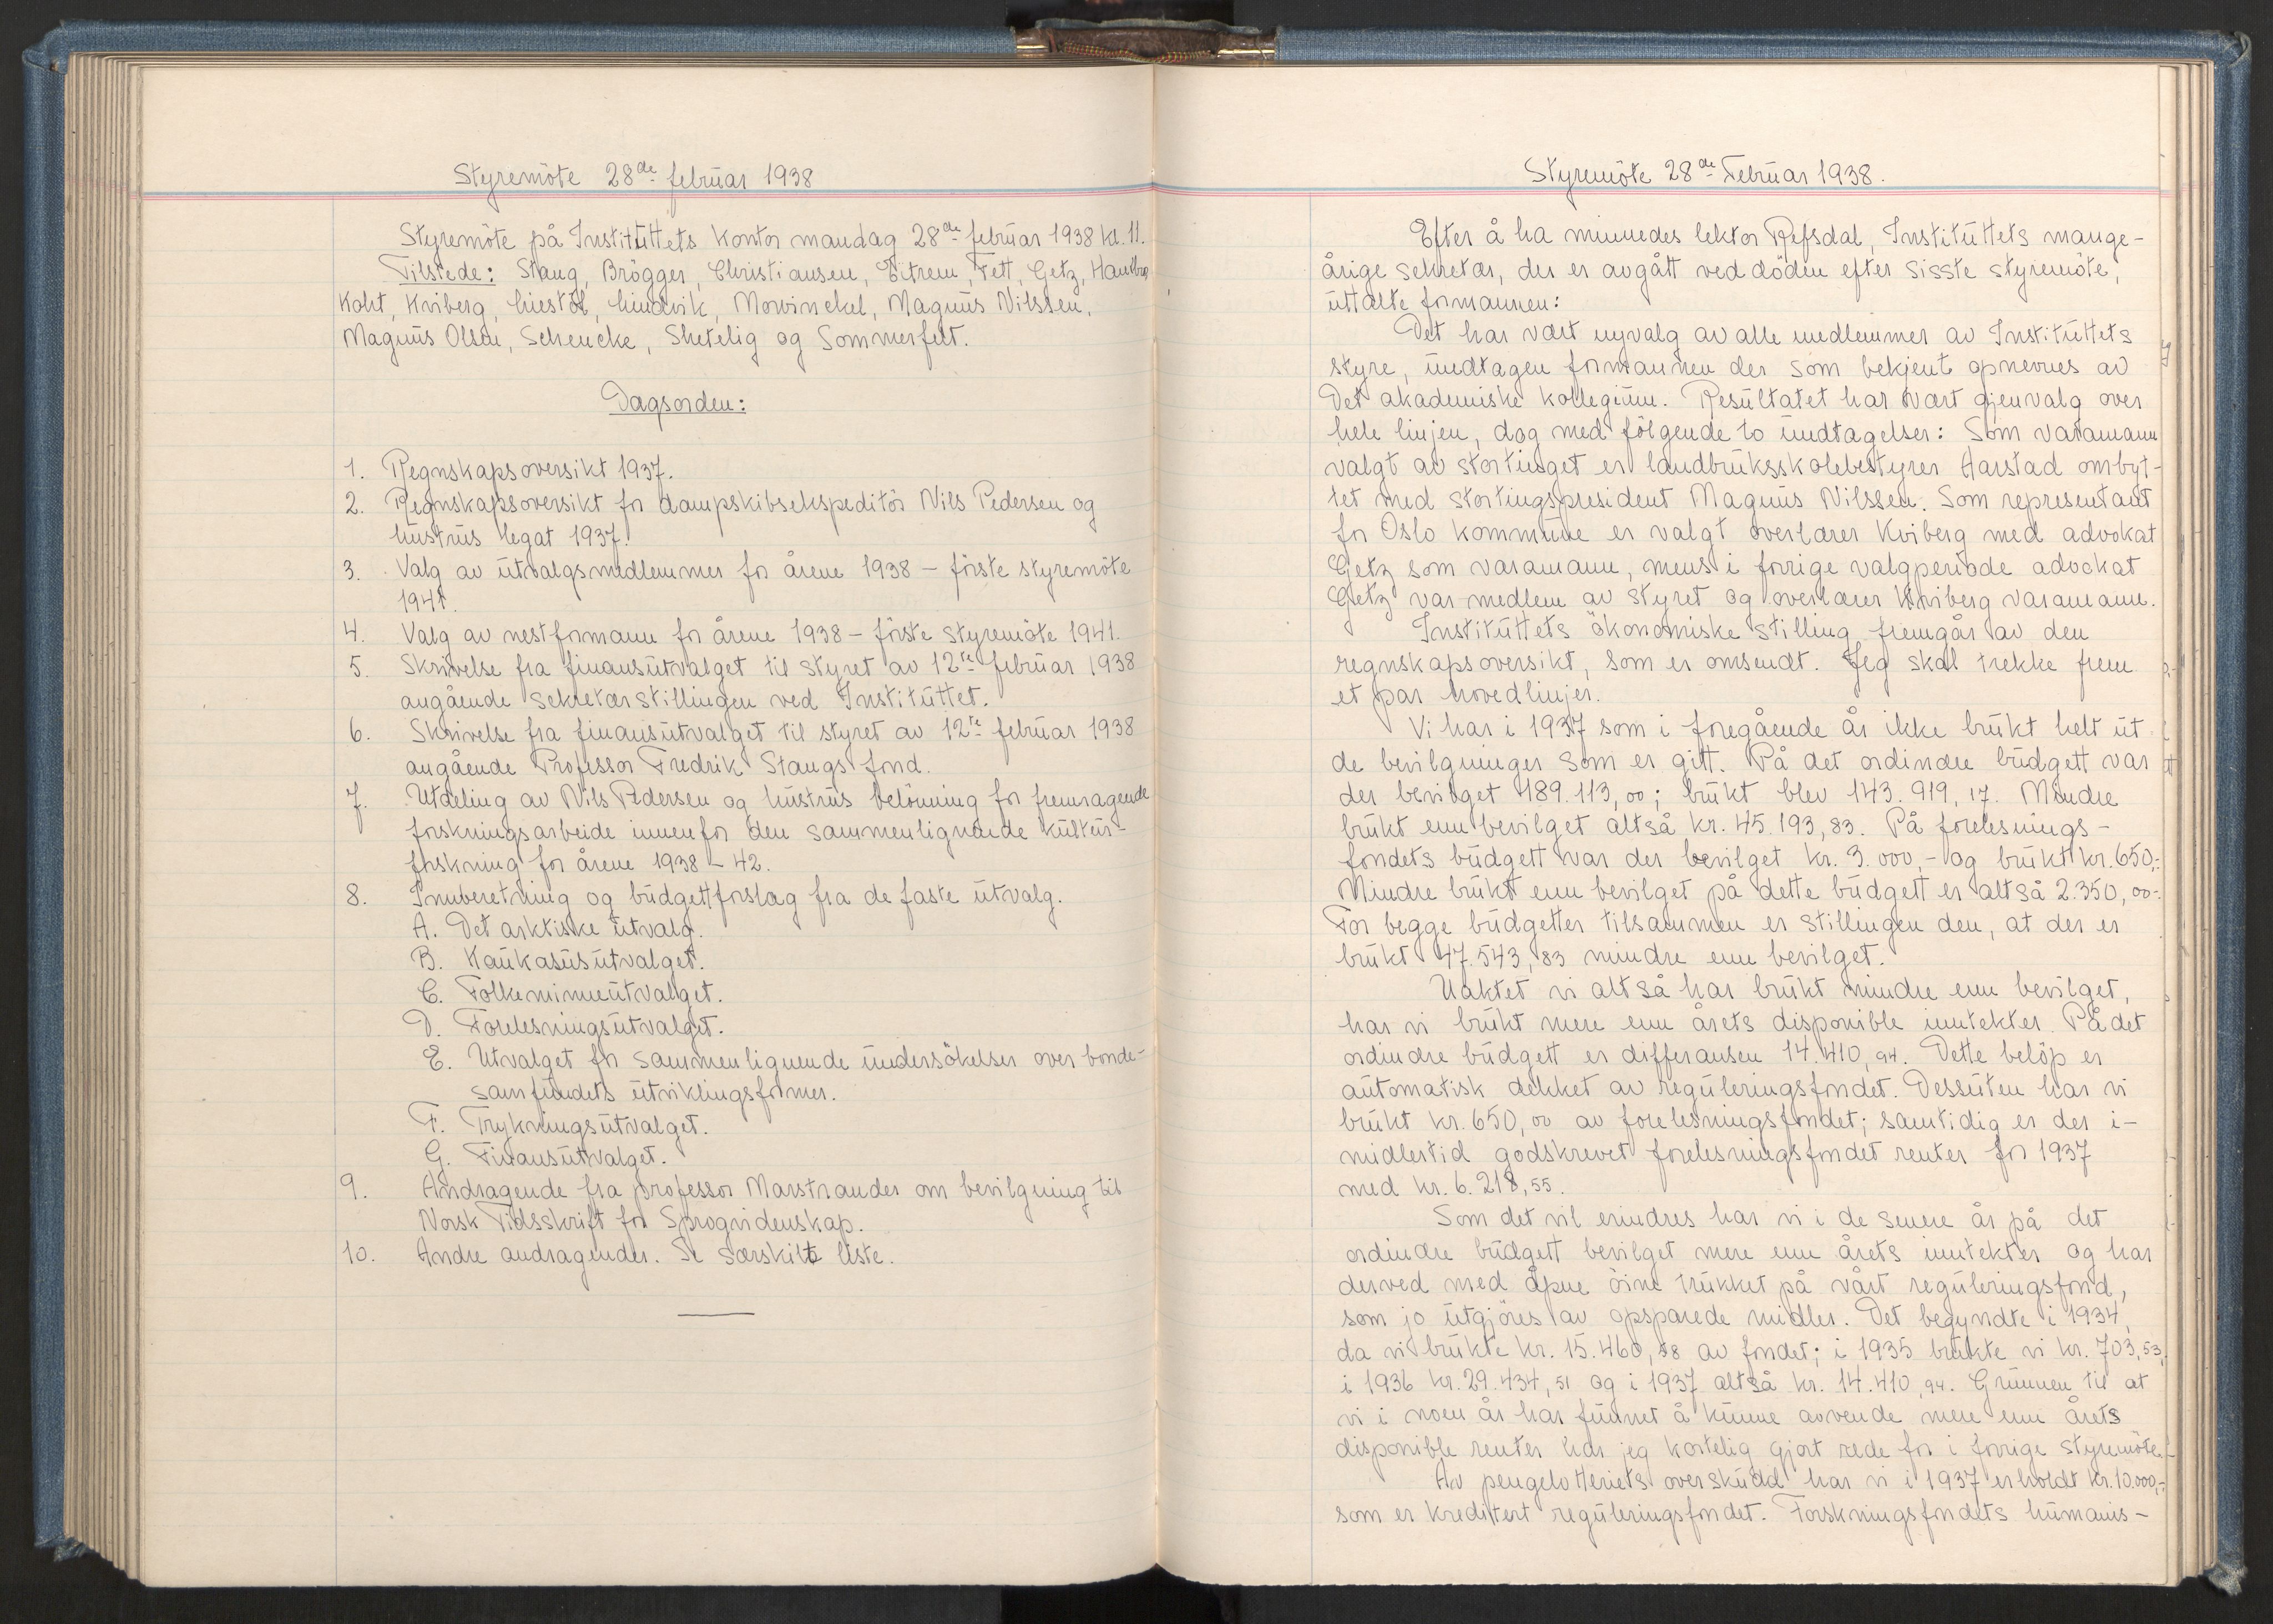 Styremöte 28de februar 1938
Styremöte på Instituttets kontor mandag 28de februar 1938 kl. 11.
Tilstede: Stang, Brögger, Christiansen, Eitrem, Fett, Getz,
Koht, Kviberg, Liestöl, Lindvik, Mowinckel, Magnus Nilssen,
Magnus Olsen, Schencke, Shetelig og Sommerfelt.
Dagsorden:
1. Regnskapsoversikt 1937.
2. Regnskapsoversikt for dampskibsekspeditör Nils Pedersen og
hustrus legat 1937.
3. Valg av utvalgsmedlemmer for årene 1938 – förste styremöte
1941.
4. Valg av nestformann for årene 1938 – förste styremöte 1941.
5. Skrivelse fra finansutvalget til styret av 12te februar 1938
angående sekretærstillingen ved Instituttet.
6. Skrivelse fra finansutvalget til styret av 12te februar 1938
angående Professor Fredrik Stangs fond.
7. Utdeling av Nils Pedersen og hustrus belönning for fremragende
forskningsarbeide innenfor den sammenlignende kultur-
forskning for årene 1938 – 42.
8. Innberetning og budgettforslag fra de faste utvalg.
A. Det arktiske utvalg.
B. Kaukasusutvalget.
C. Folkeminneutvalget.
D. Forelesningsutvalget.
E. Utvalget for sammenlignende undersökelser over bonde-
samfundets utviklingsformer.
F. Trykningsutvalget.
G. Finansutvalget.
9. Andragende fra professor Marstrander om bevilgning til
Norsk Tidsskrift for Sprogvidenskap.
10. Andre andragender. Se særskilt liste.
Styremöte 28de Februar 1938.
Efter å ha minnedes lektor Refsdal, Instituttets mange-
årige sekretær, der er avgått ved döden efter sisste styremöte,
uttalte formannen:
Det har vært nyvalg av alle medlemmer av Instituttets
styre, undtagen formannen der som bekjent opnevnes av
Det akademiske kollegium. Resultatet har vært gjenvalg over
hele linjen, dog med fölgende to undtagelser: Som varamann
valgt av stortinget er landbruksskolebestyrer Aarstad ombyt-
tet med stortingspresident Magnus Nilssen. Som representant
for Oslo kommune er valgt overlærer Kviberg med advokat
Getz som varamann, mens i forrige valgperiode advokat
Getz var medlem av styret og overlærer Kviberg varamann.
Instituttets ökonomiske stilling fremgår av den
regnskapsoversikt, som er omsendt. Jeg skal trekke frem
et par hovedlinjer.
Vi har i 1937 som i foregående år ikke brukt helt ut
de bevilgninger som er gitt. På det ordinære budgett var
der bevilget 189.113,00; brukt blev 143.919,17. Mindre
brukt enn bevilget altså kr. 45.193,83. På forelesnings-
fondets budgett var der bevilget kr. 3.000,- og brukt kr. 650,-.
Mindre brukt enn bevilget på dette budgett er altså 2.350,00.-
For begge budgetter tilsammen er stillingen den, at der er
brukt 47.543,83 mindre enn bevilget.
Uaktet vi altså har brukt mindre enn bevilget,
har vi brukt mere enn årets disponible inntekter. På det
ordinære budgett er differansen 14.410,94. Dette belöp er
automatisk dekket av reguleringsfondet. Dessuten har vi
brukt kr. 650,00 av forelesningsfondet; samtidig er der i-
midlertid godskrevet forelesningsfondet renter for 1937
med kr. 6.218,55.
Som det vil erindres har vi i de senere år på det
ordinære budgett bevilget mere enn årets inntekter og har
derved med åpne öine trukket på vårt reguleringsfond,
som jo utgjöres av opsparede midler. Det begyndte i 1934,
da vi brukte kr. 15.460,58 av fondet; i 1935 brukte vi kr. 703,53,
i 1936 kr. 29.434,51 og i 1937 altså kr. 14.410,94. Grunnen til at
vi i noen år har funnet å kunne anvende mere enn årets
disponible renter har jeg kortelig gjort rede for i forrige styremöte.
Av pengelotteriets overskudd har vi i 1937 erholdt kr. 10.000,-
som er kreditert reguleringsfondet. Forskningsfondets humanis-